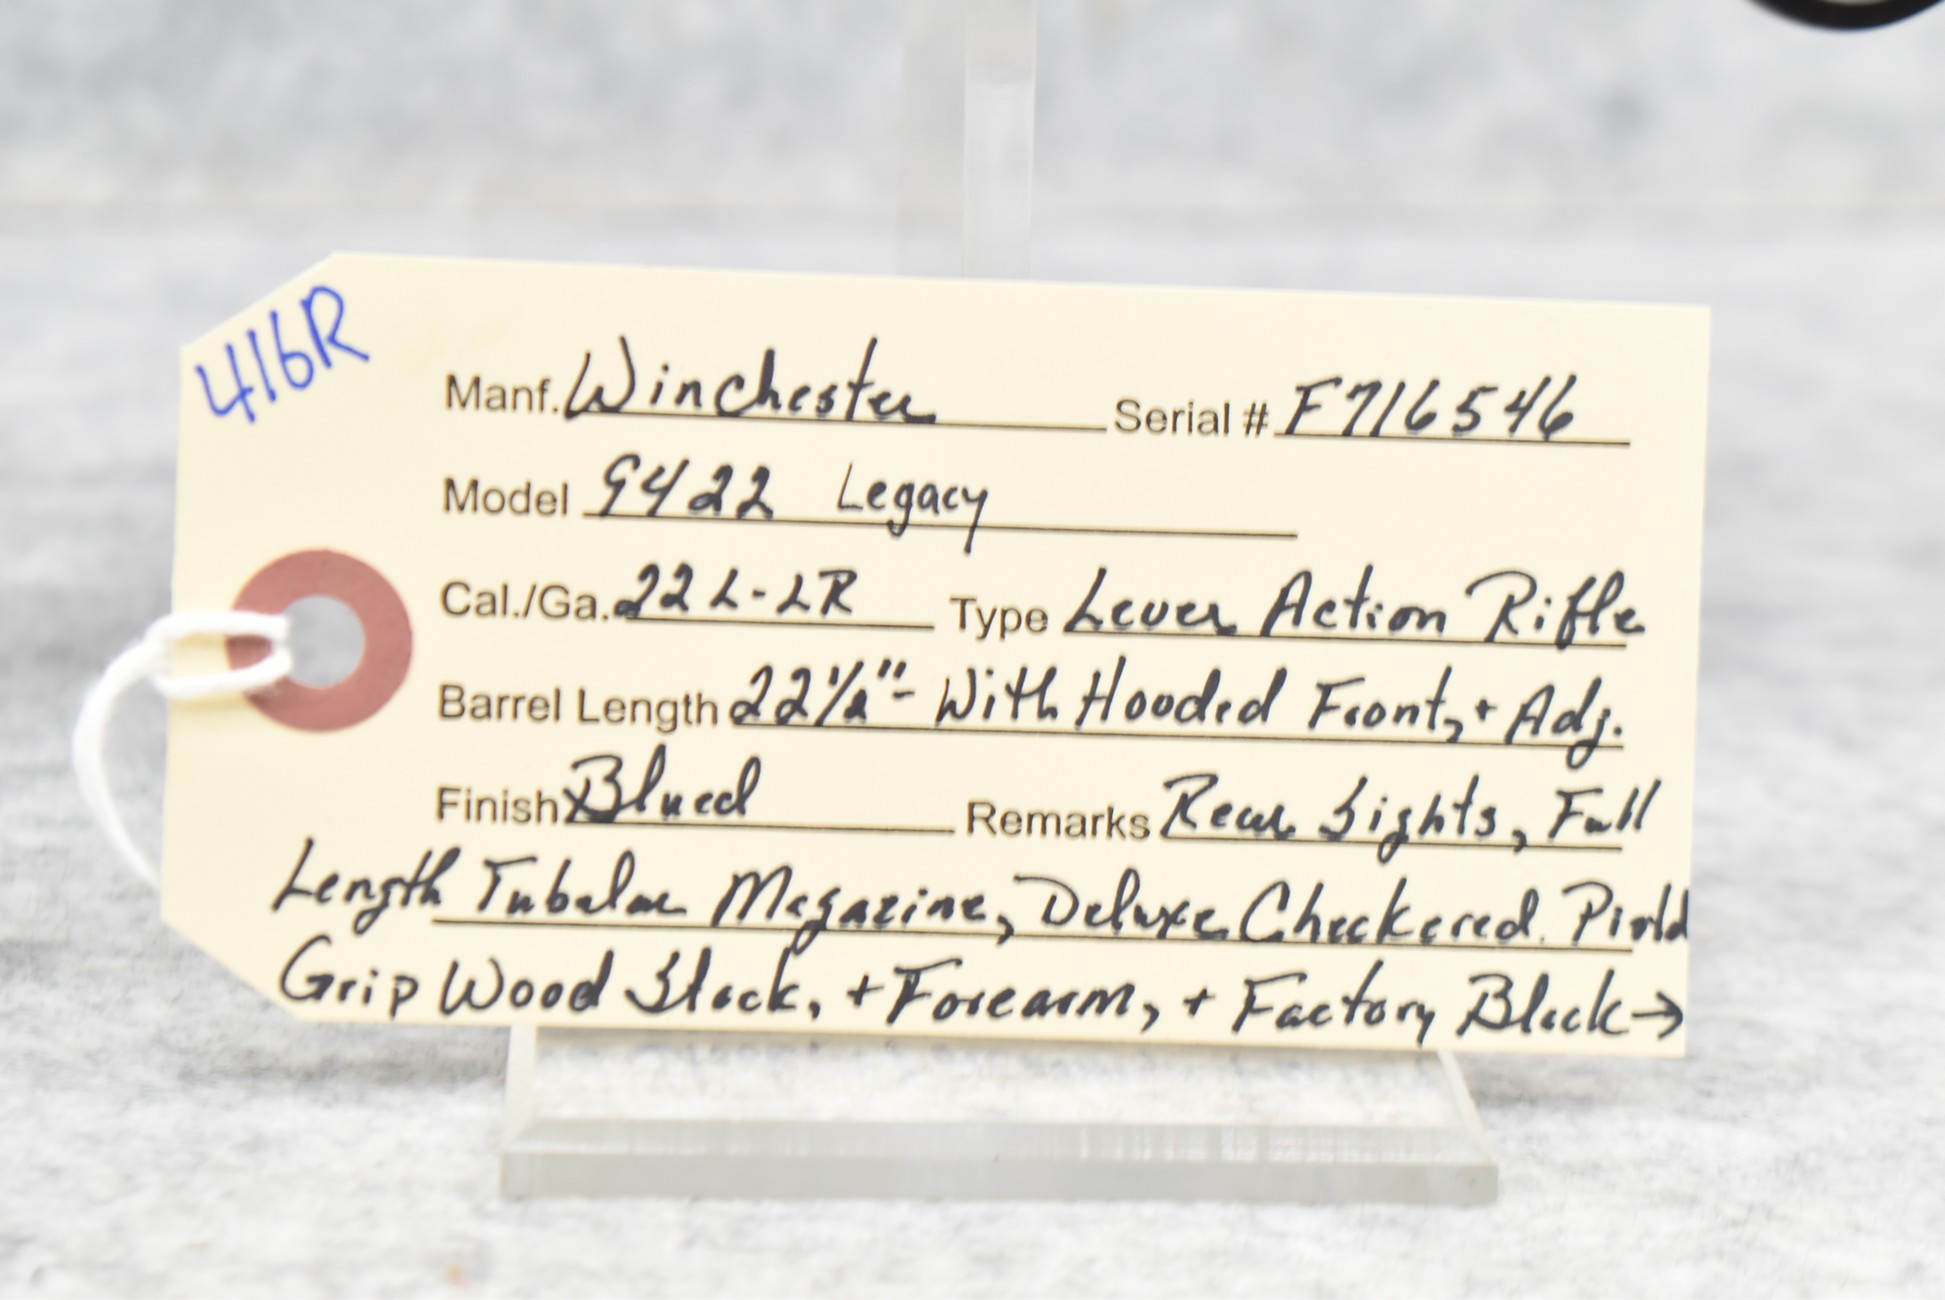 416R
Manf. Winchester Serial # F716546
Model 9422 Legacy
Cal./Ga. 22 L-LR Type Lever Action Rifle
Barrel Length 22½"- With Hooded Front, + Adj.
Finish Blued Remarks Rear Sights, Full
Length Tubular Magazine, Deluxe Checkered Pistol
Grip Wood Stock, + Forearm, + Factory Black →